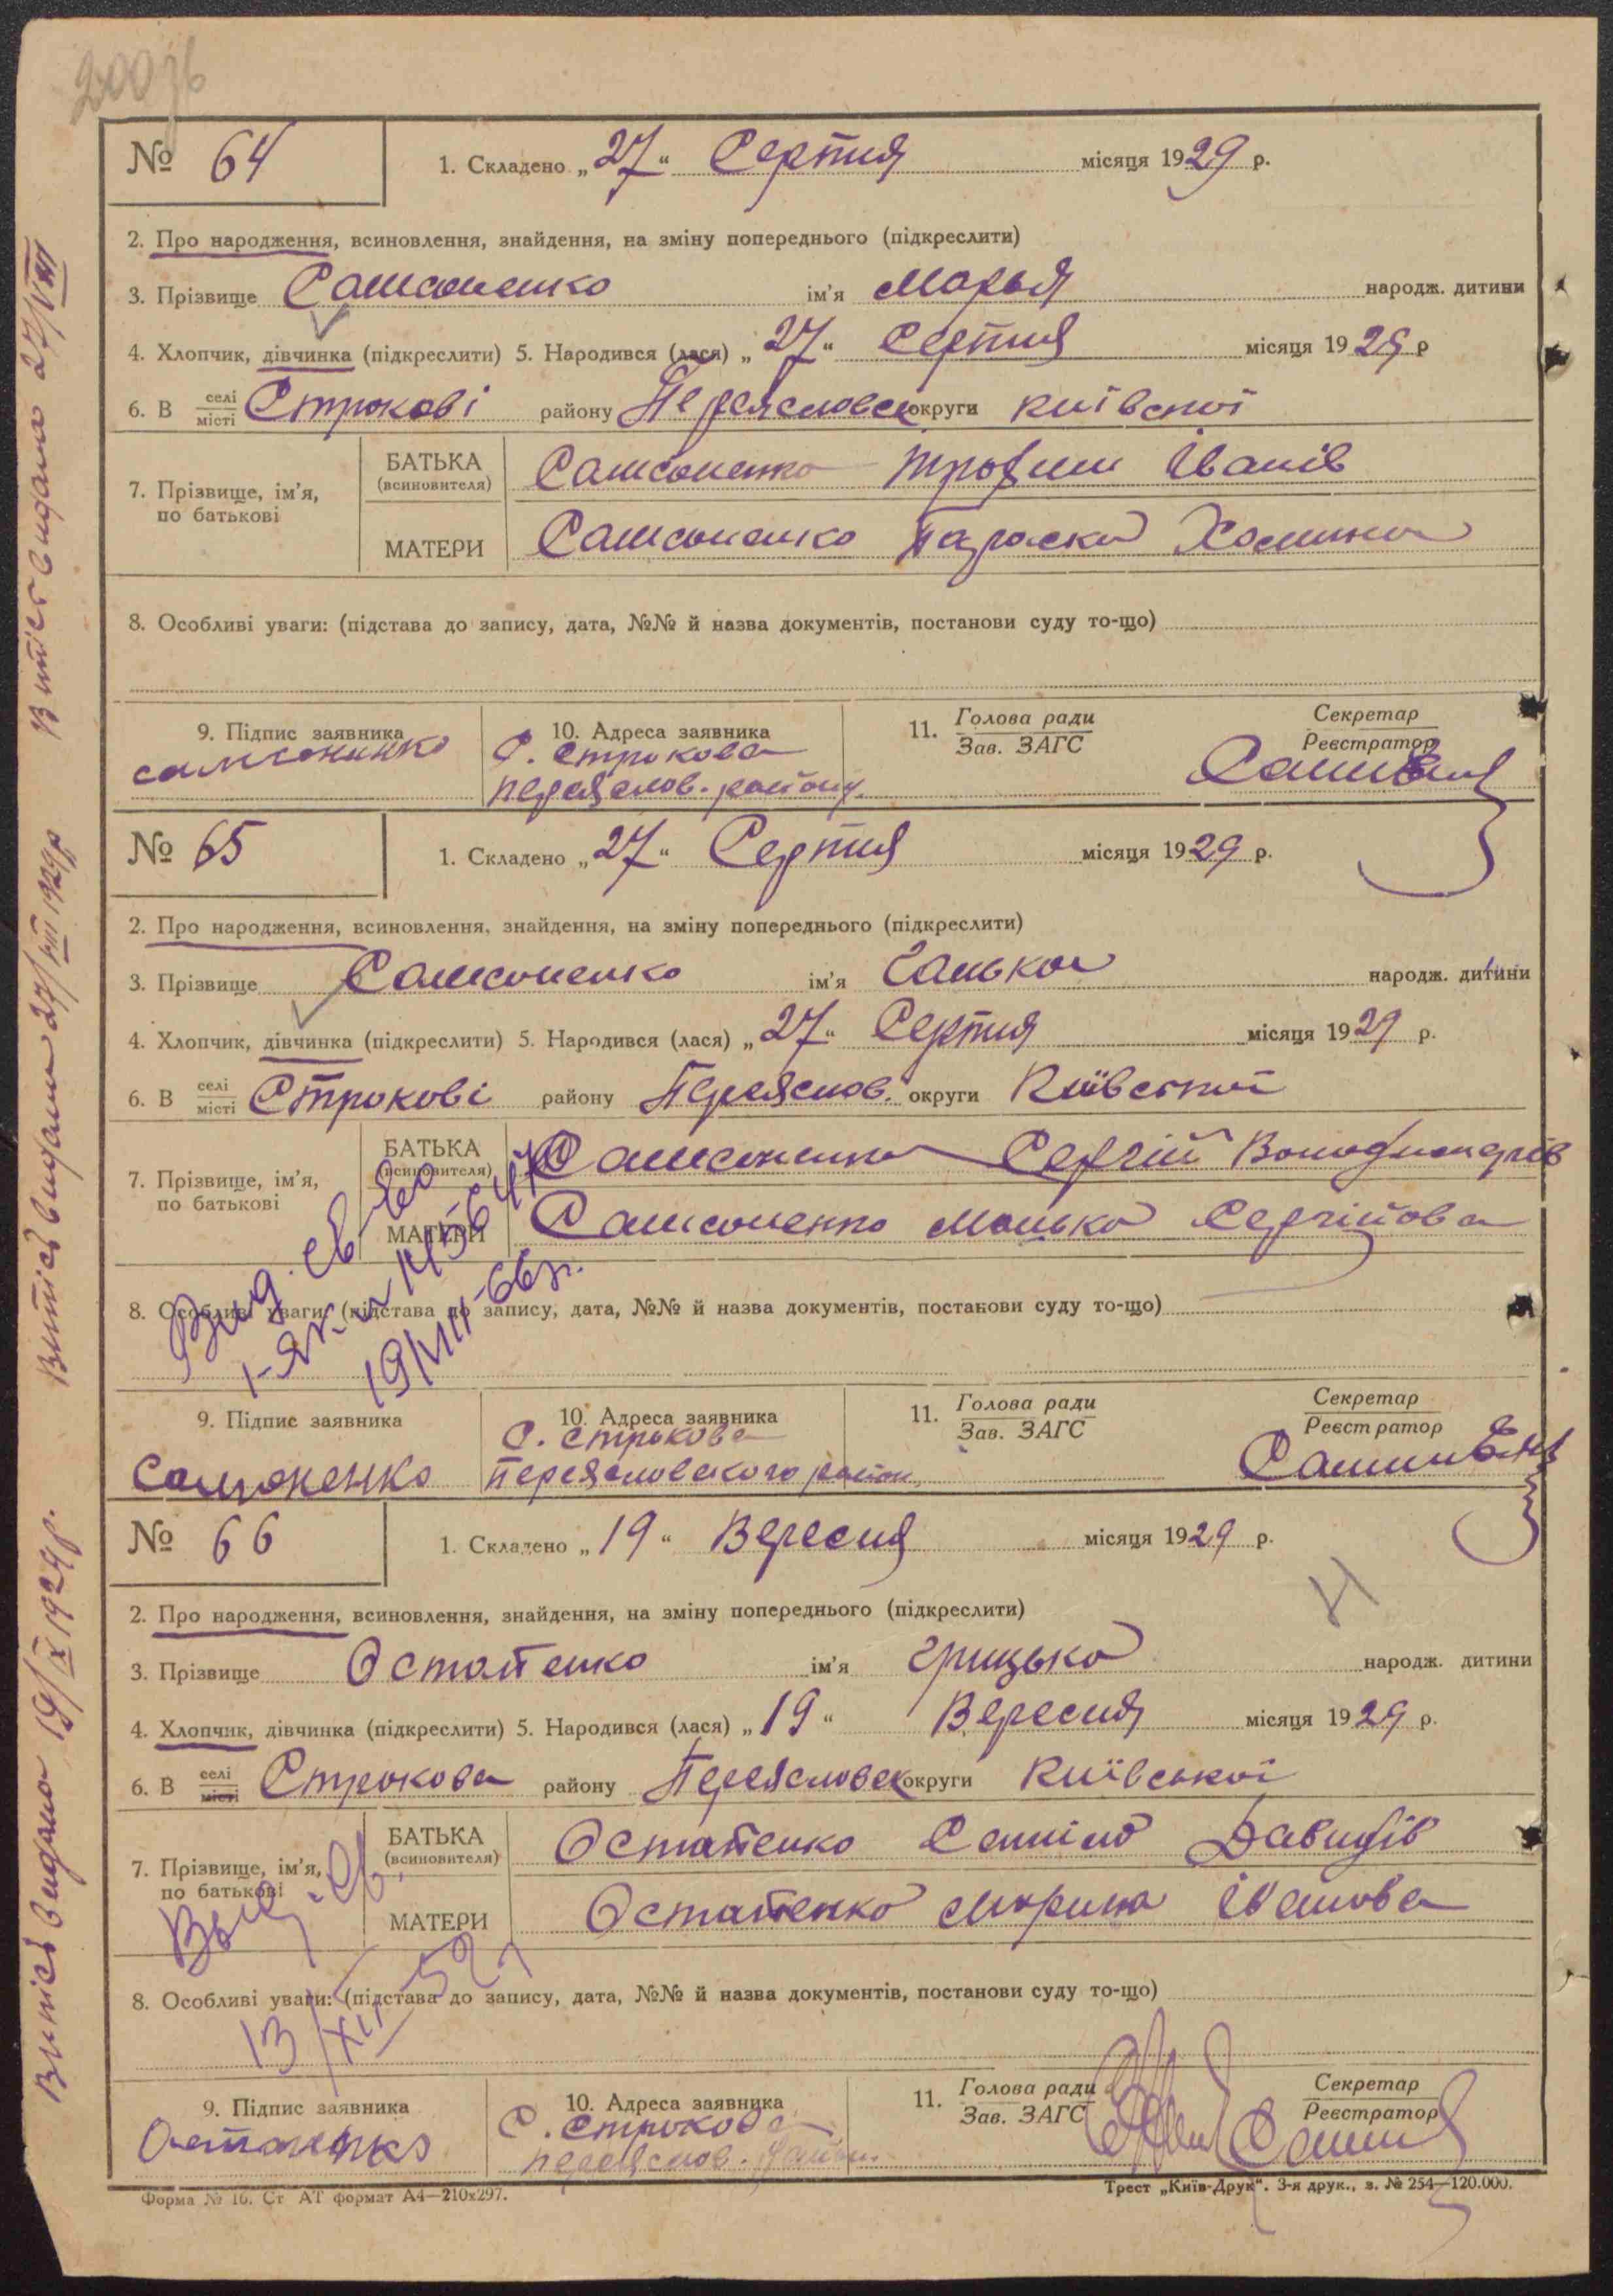 200
№ 64
1. Складено „27“ Серпня місяця 1929 р.
2. Про народження, всиновлення, знайдення, на зміну попереднього (підкреслити)
3. Прізвище Самсоненко ім'я Марья народж. дитини
4. Хлопчик, дівчинка (підкреслити) 5. Народився (лася) „27“ Серпня місяця 1929 р
6. В селі місті Строкові району Переясловск округи Київскої
7. Прізвище, ім'я, по батькові
БАТЬКА (всиновителя) Самсоненко Трофим Іванів
МАТЕРИ Самсоненко Параска Хомина
8. Особливі уваги: (підстава до запису, дата, №№ й назва документів, постанови суду то-що)
9. Підпис заявника
самсоненко
10. Адреса заявника
С. Строкова
переяслов. району
11. Голова ради
Зав. ЗАГС
Секретар
Реєстратор
Випіс видано 27/VIII
№ 65
1. Складено „27“ Серпня місяця 1929 р.
2. Про народження, всиновлення, знайдення, на зміну попереднього (підкреслити)
3. Прізвище Самсоненко ім'я Ганька народж. дитини
4. Хлопчик, дівчинка (підкреслити) 5. Народився (лася) „27“ Серпня місяця 1929 р.
6. В селі місті Строкові району Переяслов. округи Київскої
7. Прізвище, ім'я, по батькові
БАТЬКА (всиновителя) Самсоненко Сергій
МАТЕРИ Самсоненко Манька Сергійова
8. Особливі уваги: (підстава до запису, дата, №№ й назва документів, постанови суду то-що)
Выд. св-во
19/VIII-66р.
9. Підпис заявника
Самсоненко
10. Адреса заявника
С. Строкова
Переясловского район
11. Голова ради
Зав. ЗАГС
Секретар
Реєстратор
Випіс видано 27/VIII 1929р
№ 66
1. Складено „19“ Вересня місяця 1929 р.
2. Про народження, всиновлення, знайдення, на зміну попереднього (підкреслити)
3. Прізвище Остапенко ім'я Грицько народж. дитини
4. Хлопчик, дівчинка (підкреслити) 5. Народився (лася) „19“ Вересня місяця 1929 р.
6. В селі місті Строкова району Переясловск округи Київської
7. Прізвище, ім'я, по батькові
БАТЬКА (всиновителя) Остапенко Данило Давидів
МАТЕРИ Остапенко Марина Іванова
8. Особливі уваги: (підстава до запису, дата, №№ й назва документів, постанови суду то-що)
Выд. св.
13/XII
9. Підпис заявника
Остапенко
10. Адреса заявника
С. Строкова
переяслов. район
11. Голова ради
Зав. ЗАГС
Секретар
Реєстратор
Випіс видано 19/IX 1929р.
Форма № 16. Ст АТ формат А4—210х297.
Трест „Київ-Друк“. 3-я друк., з. № 254—120.000.